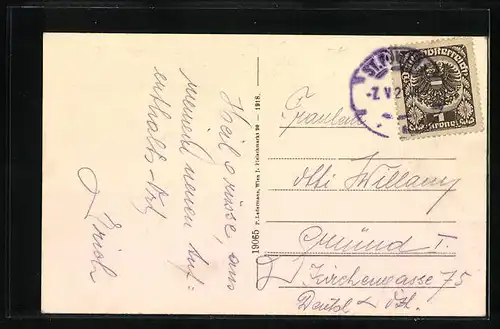 Heil Grüsse, aus
meinem neuen Auf:
enthalts-Ort
Erich
19065 P. Ledermann, Wien I. Fleischmarkt 20 - 1918.
ST. PÖ
-7.V.2
Deutschösterreich
1
Krone
Fräulein
Willany
Gmünd I.
Kirchengasse 75